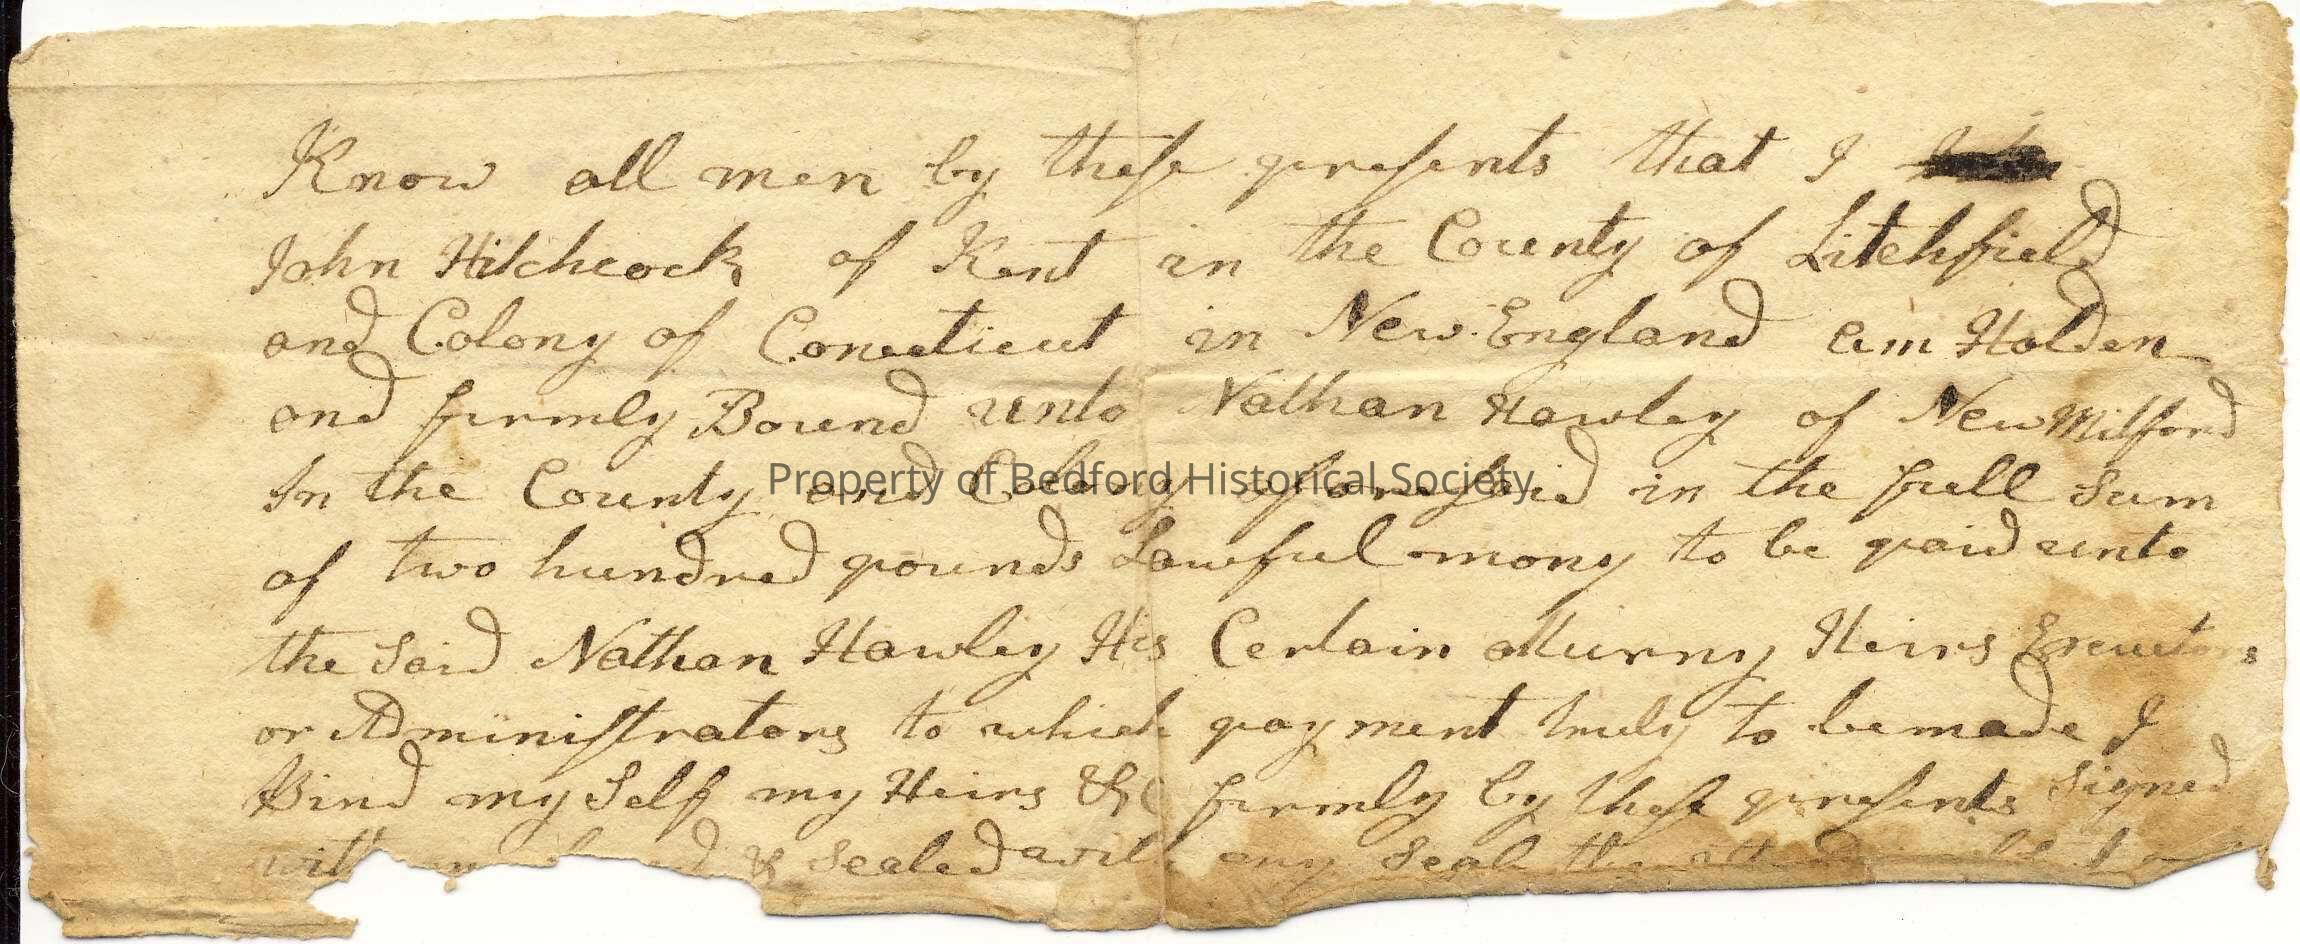 Know all men by these presents that I
John Hitchcock of Kent in the County of Litchfield
and Colony of Conecticut in New England am Holden
and firmly Bound unto Nathan Hawley of New Milford
In the County and Colony aforesaid in the full Sum
Property of Bedford Historical Society
of two hundred pounds Lawful mony to be paid unto
the Said Nathan Hawley His Certain Atturny Heirs Executors
or Administrators to which payment truly to be made I
Bind my Self my Heirs &c firmly by these presents Signed
with & Sealed with my Seal the